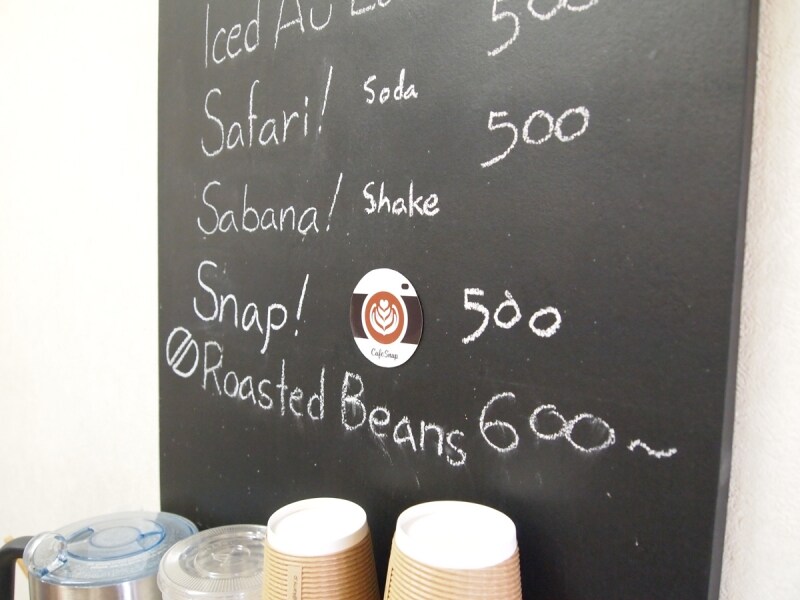 Iced Au 500
Safari! Soda 500
Sabana! Shake
Snap! 500
CafeSnap
Roasted Beans 600~